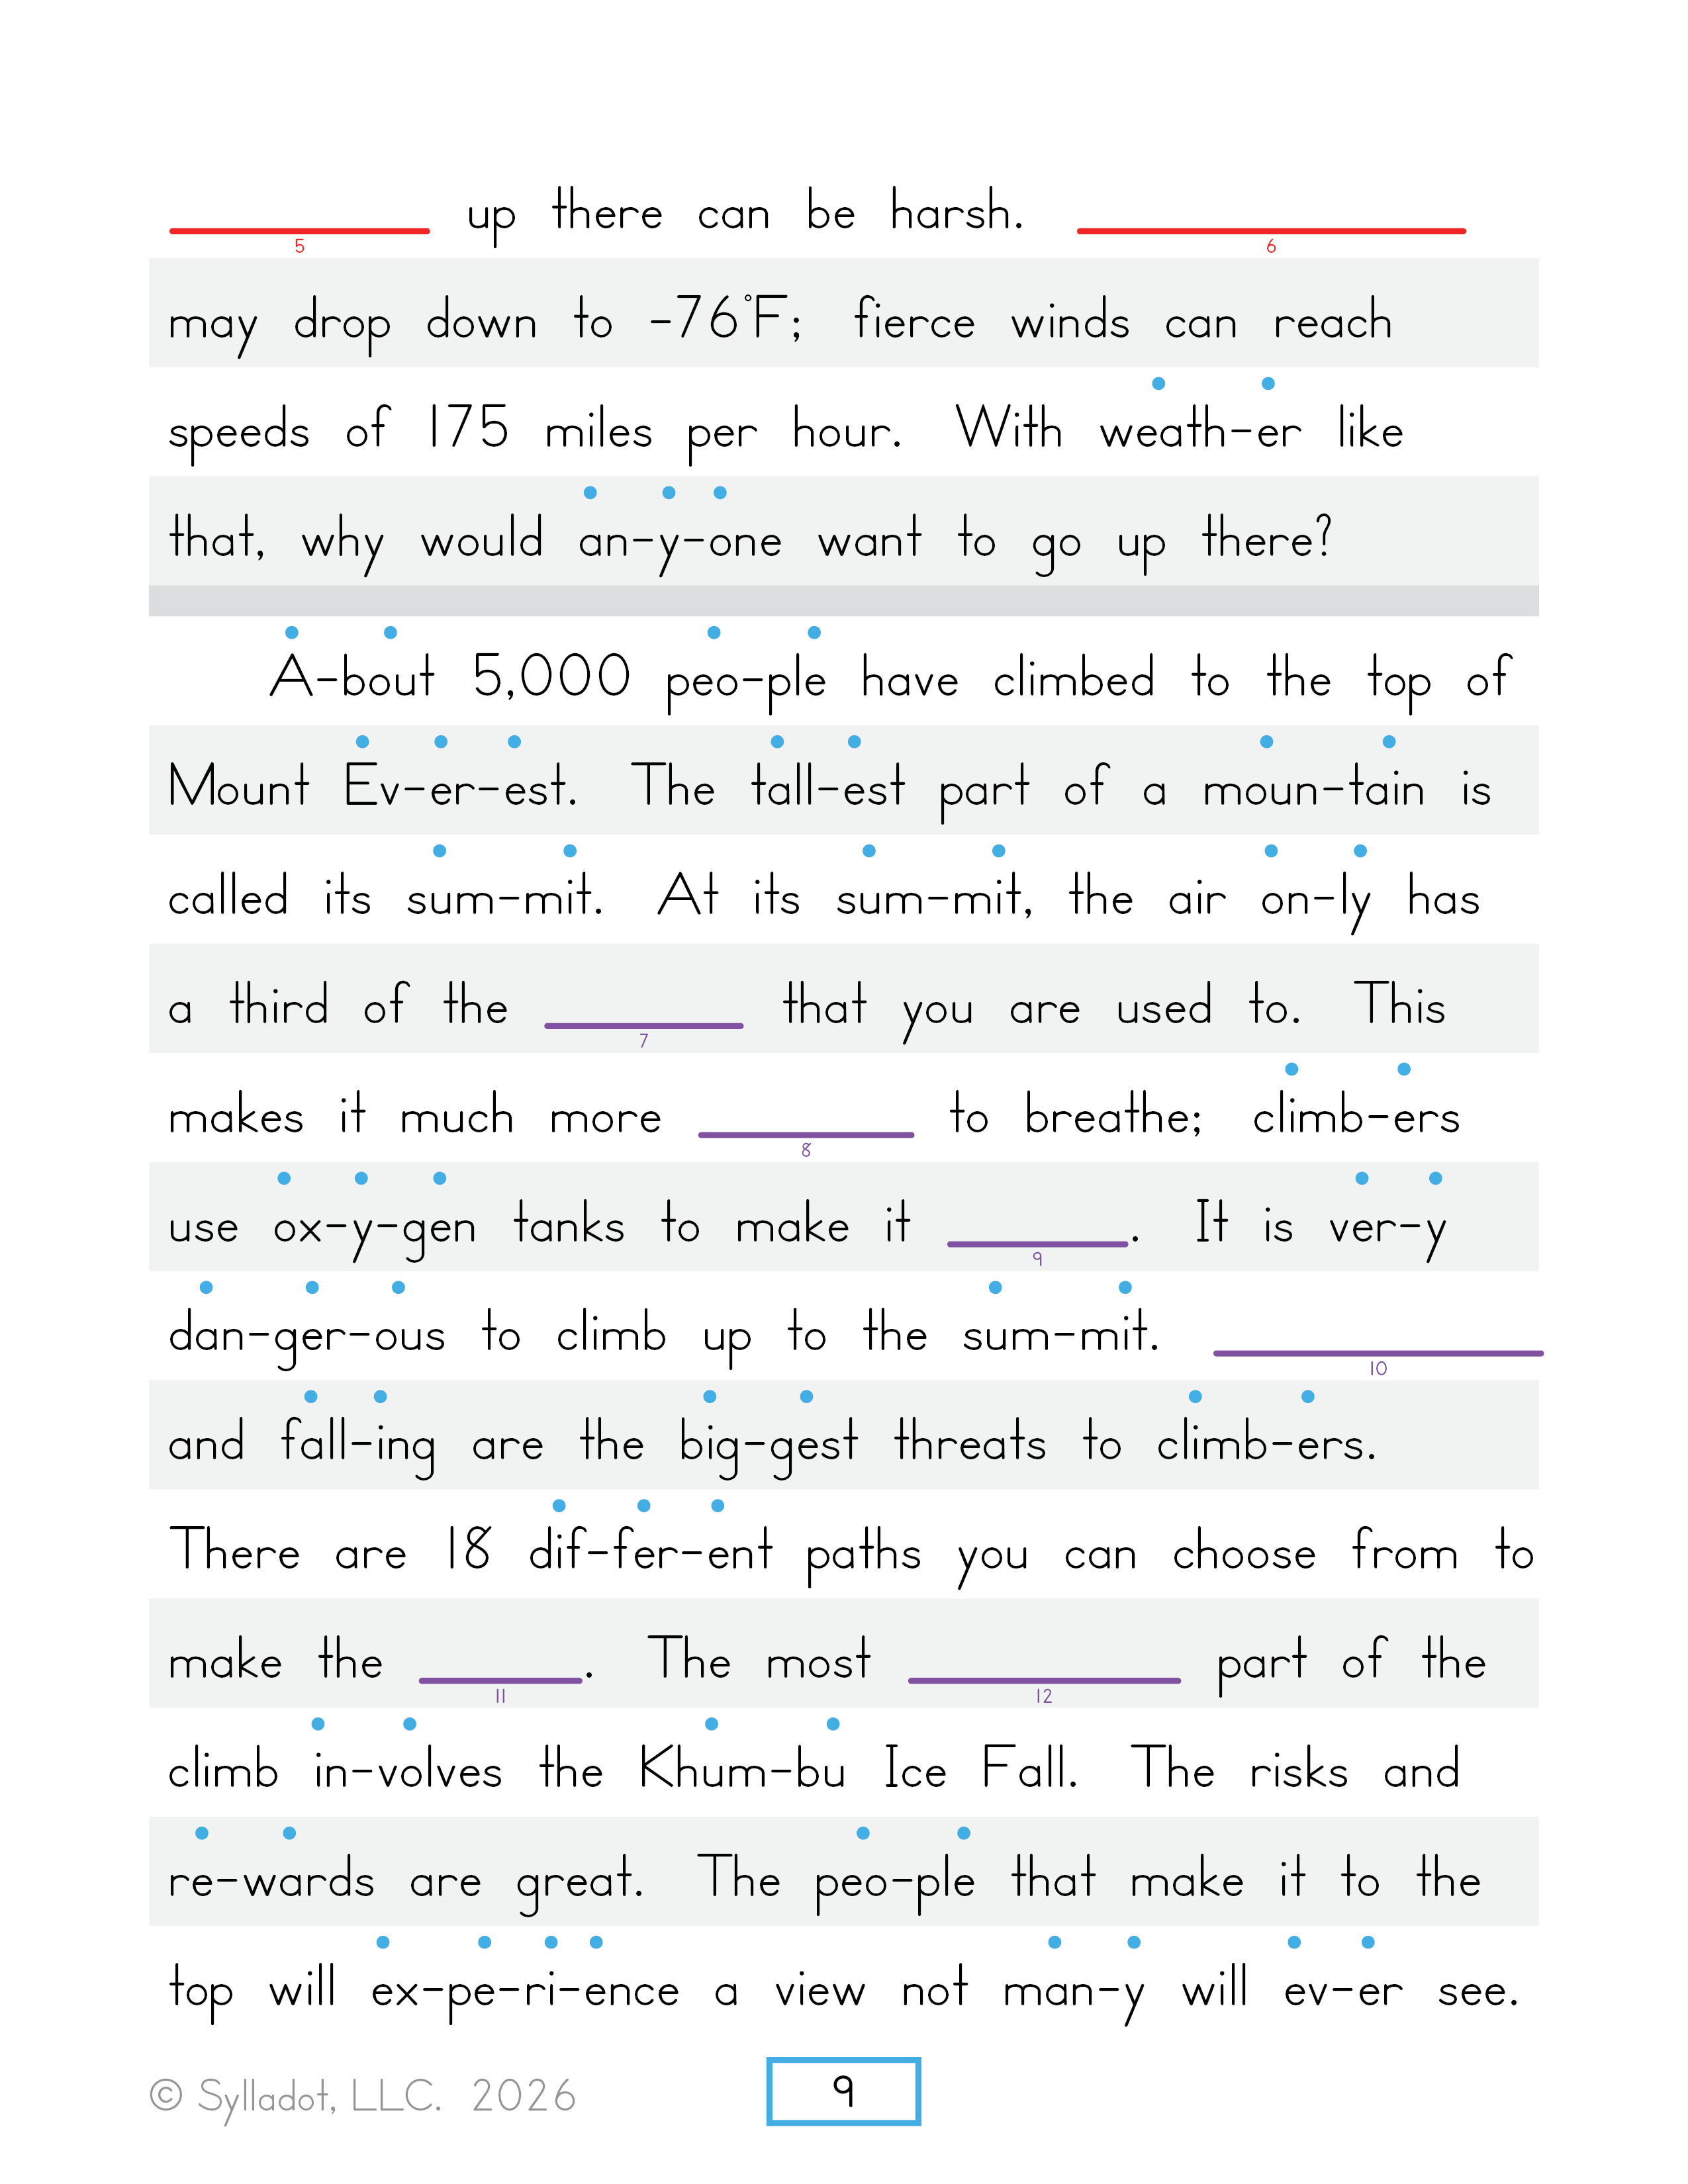 up there can be harsh.
5 6
may drop down to -76°F; fierce winds can reach
speeds of 175 miles per hour. With weath-er like
that, why would an-y-one want to go up there?
A-bout 5,000 peo-ple have climbed to the top of
Mount Ev-er-est. The tall-est part of a moun-tain is
called its sum-mit. At its sum-mit, the air on-ly has
a third of the that you are used to. This
7
makes it much more to breathe; climb-ers
8
use ox-y-gen tanks to make it . It is ver-y
9
dan-ger-ous to climb up to the sum-mit.
10
and fall-ing are the big-gest threats to climb-ers.
There are 18 dif-fer-ent paths you can choose from to
make the . The most part of the
11 12
climb in-volves the Khum-bu Ice Fall. The risks and
re-wards are great. The peo-ple that make it to the
top will ex-pe-ri-ence a view not man-y will ev-er see.
© Sylladot, LLC. 2026
9